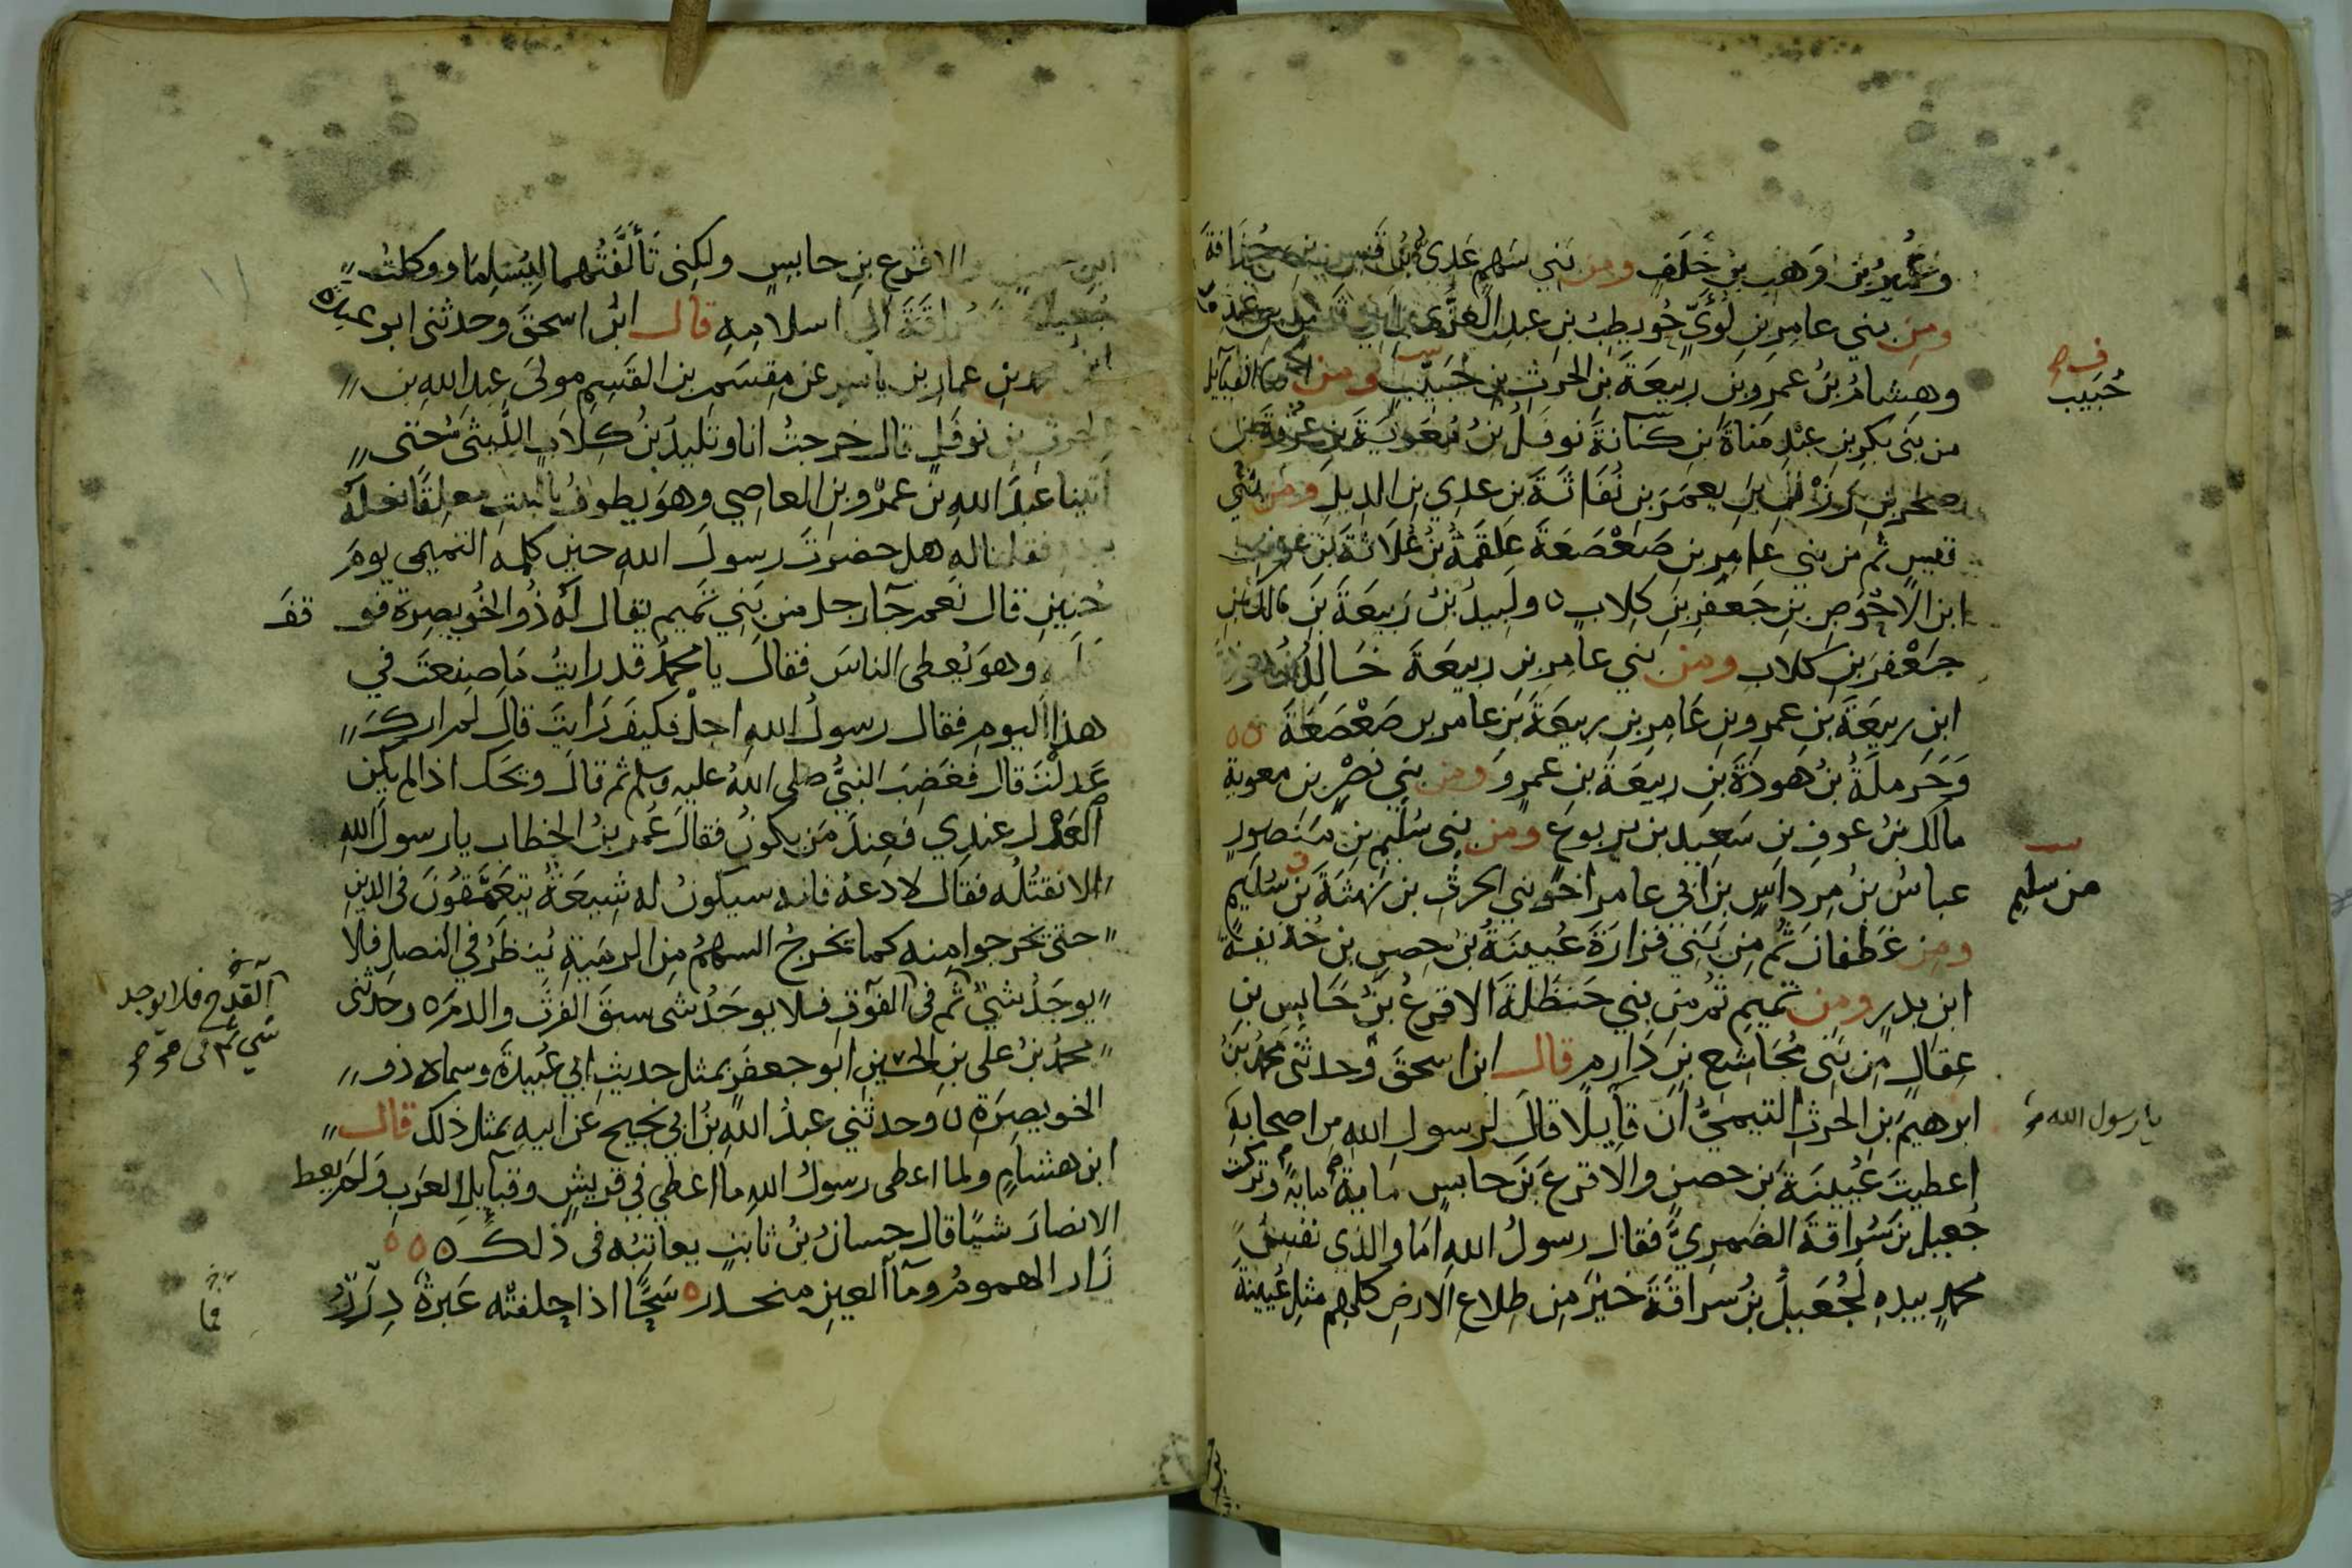 وعمير بن وهب بن خلف ومن بني سهم عدي بن قيس بن حذافة
ومن بني عامر بن لؤي حويطب بن عبد العزى بن ابي قيس بن عبد ود
وهشام بن عمرو بن ربيعة بن الحرث بن حبيب ومن افنا القبايل
من بني بكر بن عبد مناة بن كنانة نوفل بن معوية بن عروة بن
صخر بن رزن بن يعمر بن نفاثة بن عدي بن الديل ومن بني
قيس ثم من بني عامر بن صعصعة علقمة بن علاثة بن عوف
ابن الاحوص بن جعفر بن كلاب ن ولبيد بن ربيعة بن مالك بن
جعفر بن كلاب ومن بني عامر بن ربيعة خالد بن هوذة
ابن ربيعة بن عمرو بن عامر بن ربيعة بن عامر بن صعصعة
وحرملة بن هوذة بن ربيعة بن عمرو ومن بني نصر بن معوية
مالك بن عوف بن سعيد بن يربوع ومن بني سليم بن منصور
عباس بن مرداس بن ابي عامر اخو بني الحرث بن بهثة بن سليم
ومن غطفان ثم من بني فزارة عيينة بن حصن بن حذيفة
ابن بدر ومن تميم ثم من بني حنظلة الاقرع بن حابس بن
عقال من بني مجاشع بن دارم قال ابن اسحق وحدثني محمد بن
ابرهيم بن الحرث التيمي ان قايلا قال لرسول الله من اصحابه
اعطيت عيينة بن حصن والاقرع بن حابس ماية ماية وتركت
جعيل بن سراقة الضمري فقال رسول الله اما والذي نفس
محمد بيده لجعيل بن سراقة خير من طلاع الارض كلهم مثل عيينة
حبيب
من سليم
يا رسول الله
ابن حصن والاقرع بن حابس ولكني تألفتهما ليسلما ووكلت
جعيل بن سراقة الى اسلامه قال ابن اسحق وحدثني ابو عبيدة
ابن محمد بن عمار بن ياسر عن مقسم بن القسم مولى عبد الله بن
الحرث بن نوفل قال خرجت انا وتليد بن كلاب الليثي حتى
اتينا عبد الله بن عمرو بن العاصي وهو يطوف بالبيت معلقا نعله
بيده فقلنا له هل حضرت رسول الله حين كلمه التميمي يوم
حنين قال نعم جآ رجل من بني تميم يقال له ذو الخويصرة فو قف
عليه وهو يعطي الناس فقال يا محمد قد رايت ما صنعت في
هذا اليوم فقال رسول الله اجل فكيف رايت قال لم ارك
عدلت قال فغضب النبي صلى الله عليه وسلم ثم قال ويحك اذا لم يكن
العدل عندي فعند من يكون فقال عمر بن الخطاب يا رسول الله
الا نقتله فقال لا دعه فانه سيكون له شيعة يتعمقون في الدين
حتى يخرجوا منه كما يخرج السهم من الرمية ينظر في النصل فلا
يوجد شي ثم في الفوق فلا يوجد شي سبق الفرث والدم ه وحدثني
محمد بن علي بن الحسين ابو جعفر بمثل حديث ابي عبيدة وسماه ذو
الخويصرة ن وحدثني عبد الله بن ابي نجيح عن ابيه بمثل ذلك قال
ابن هشام ولما اعطى رسول الله ما اعطى في قريش وقبايل العرب ولم يعط
الانصار شيا قال حسان بن ثابت يعاتبه في ذلك ه ه ه
زاد الهموم ومآ العين منحدر ه سحا اذا حفلته عبرة درر
القدح فلا يوجد
شي ثم في